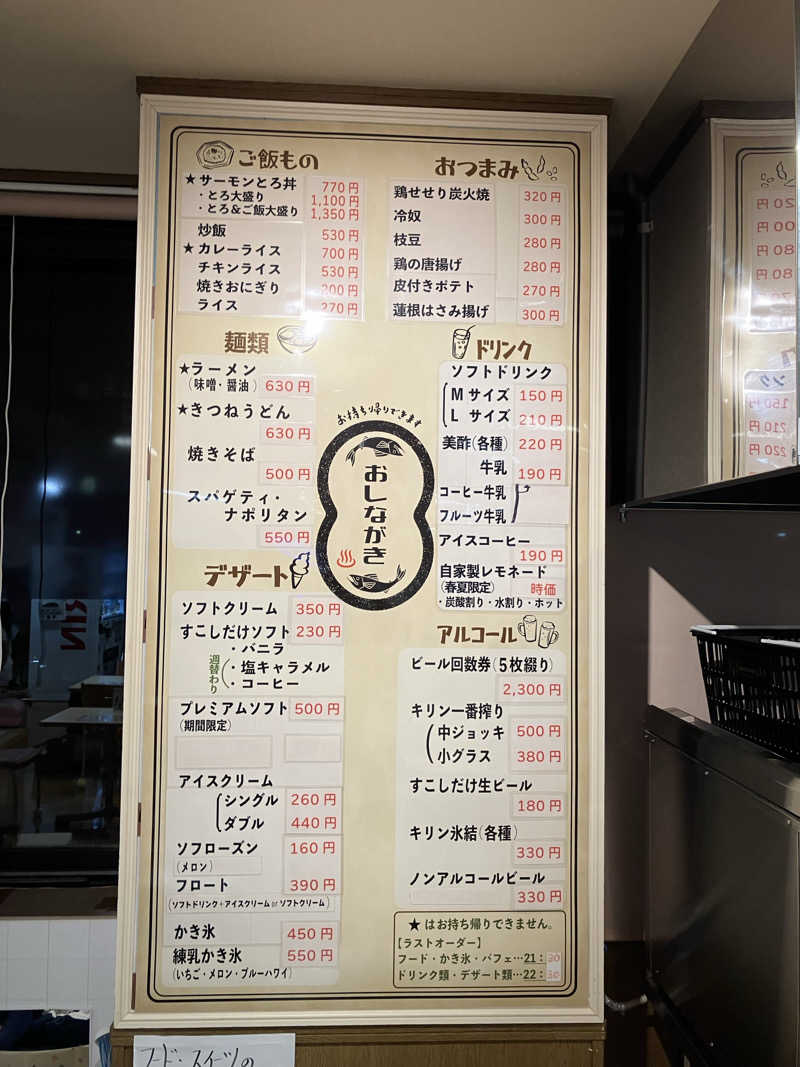 ご飯もの
★サーモンとろ丼 770円
・とろ大盛り 1,100円
・とろ&ご飯大盛り 1,350円
炒飯 530円
★カレーライス 700円
チキンライス 530円
焼きおにぎり 200円
ライス 270円
麺類
★ラーメン
(味噌・醤油) 630円
★きつねうどん
630円
焼きそば
500円
スパゲティ・
ナポリタン
550円
デザート
ソフトクリーム 350円
すこしだけソフト 230円
・バニラ
週替わり
・塩キャラメル
・コーヒー
プレミアムソフト 500円
(期間限定)
アイスクリーム
シングル 260円
ダブル 440円
ソフローズン 160円
(メロン)
フロート 390円
(ソフトドリンク+アイスクリーム or ソフトクリーム)
かき氷 450円
練乳かき氷 550円
(いちご・メロン・ブルーハワイ)
お持ち帰りできます
おしながき
おつまみ
鶏せせり炭火焼 320円
冷奴 300円
枝豆 280円
鶏の唐揚げ 280円
皮付きポテト 270円
蓮根はさみ揚げ 300円
ドリンク
ソフトドリンク
Mサイズ 150円
L サイズ 210円
美酢(各種) 220円
牛乳 190円
コーヒー牛乳
フルーツ牛乳
アイスコーヒー
190円
自家製レモネード
(春夏限定) 時価
・炭酸割り・水割り・ホット
アルコール
ビール回数券(5枚綴り)
2,300円
キリン一番搾り
中ジョッキ 500円
小グラス 380円
すこしだけ生ビール
180円
キリン氷結(各種)
330円
ノンアルコールビール
330円
★はお持ち帰りできません。
【ラストオーダー】
フード・かき氷・パフェ…21:30
ドリンク類・デザート類…22:30
フード・スイーツの